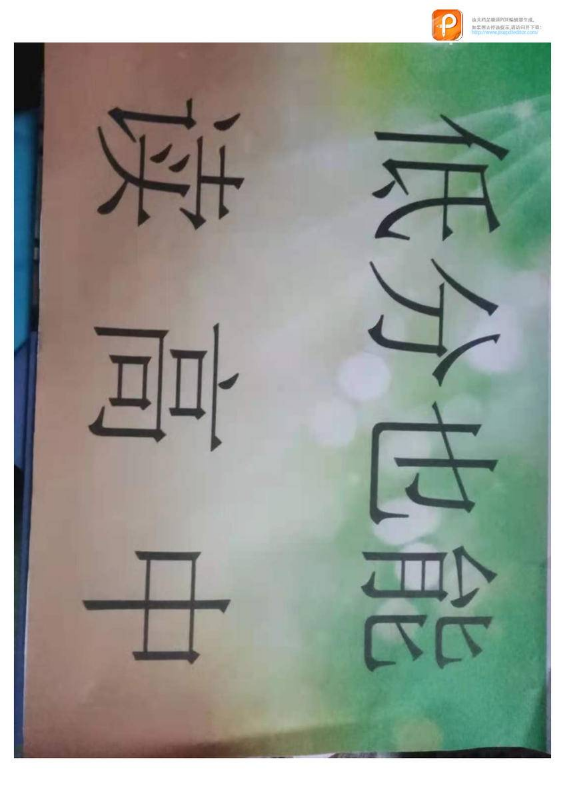 低分也能
读高中